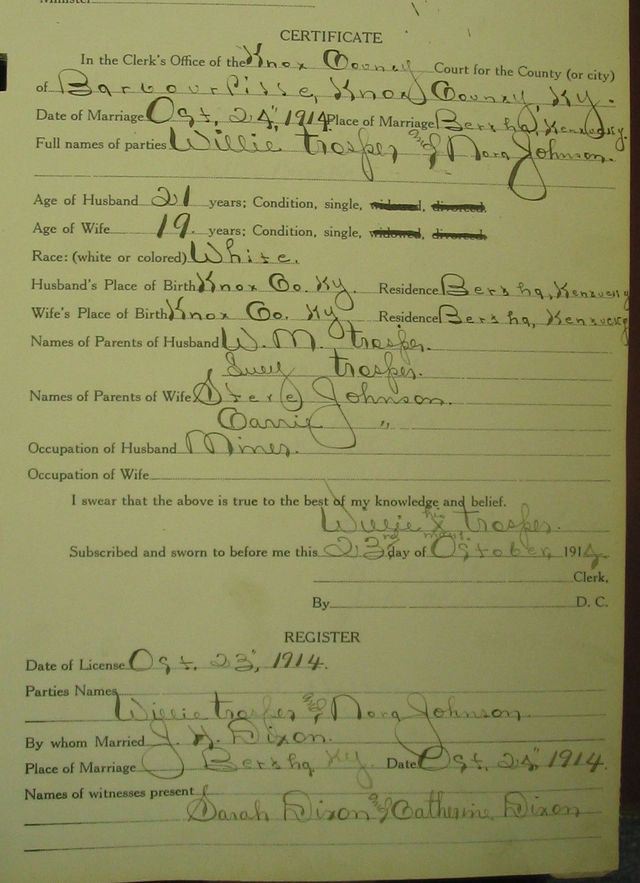 CERTIFICATE
In the Clerk's Office of the Knox County Court for the County (or city)
of Barbourville, Knox County, Ky.
Date of Marriage Oct. 24", 1914. Place of Marriage Bertha, Kentucky.
Full names of parties Willie Trosper and Nora Johnson.
Age of Husband 21 years; Condition, single, widowed, divorced.
Age of Wife 19. years; Condition, single, widowed, divorced.
Race: (white or colored) White.
Husband's Place of Birth Knox Co. Ky. Residence Bertha, Kentucky
Wife's Place of Birth Knox Co. Ky Residence Bertha, Kentucky
Names of Parents of Husband W. M. Trosper.
Lucy Trosper.
Names of Parents of Wife Steve Johnson.
Carrie "
Occupation of Husband Miner.
Occupation of Wife
I swear that the above is true to the best of my knowledge and belief.
Willie his X mark Trosper.
Subscribed and sworn to before me this 23rd day of October, 1914.
Clerk,
By D. C.
REGISTER
Date of License Oct. 23", 1914.
Parties Names
Willie Trosper and Nora Johnson
By whom Married J. H. Dixon.
Place of Marriage Bertha Ky. Date Oct. 24", 1914.
Names of witnesses present
Sarah Dixon and Catherine Dixon